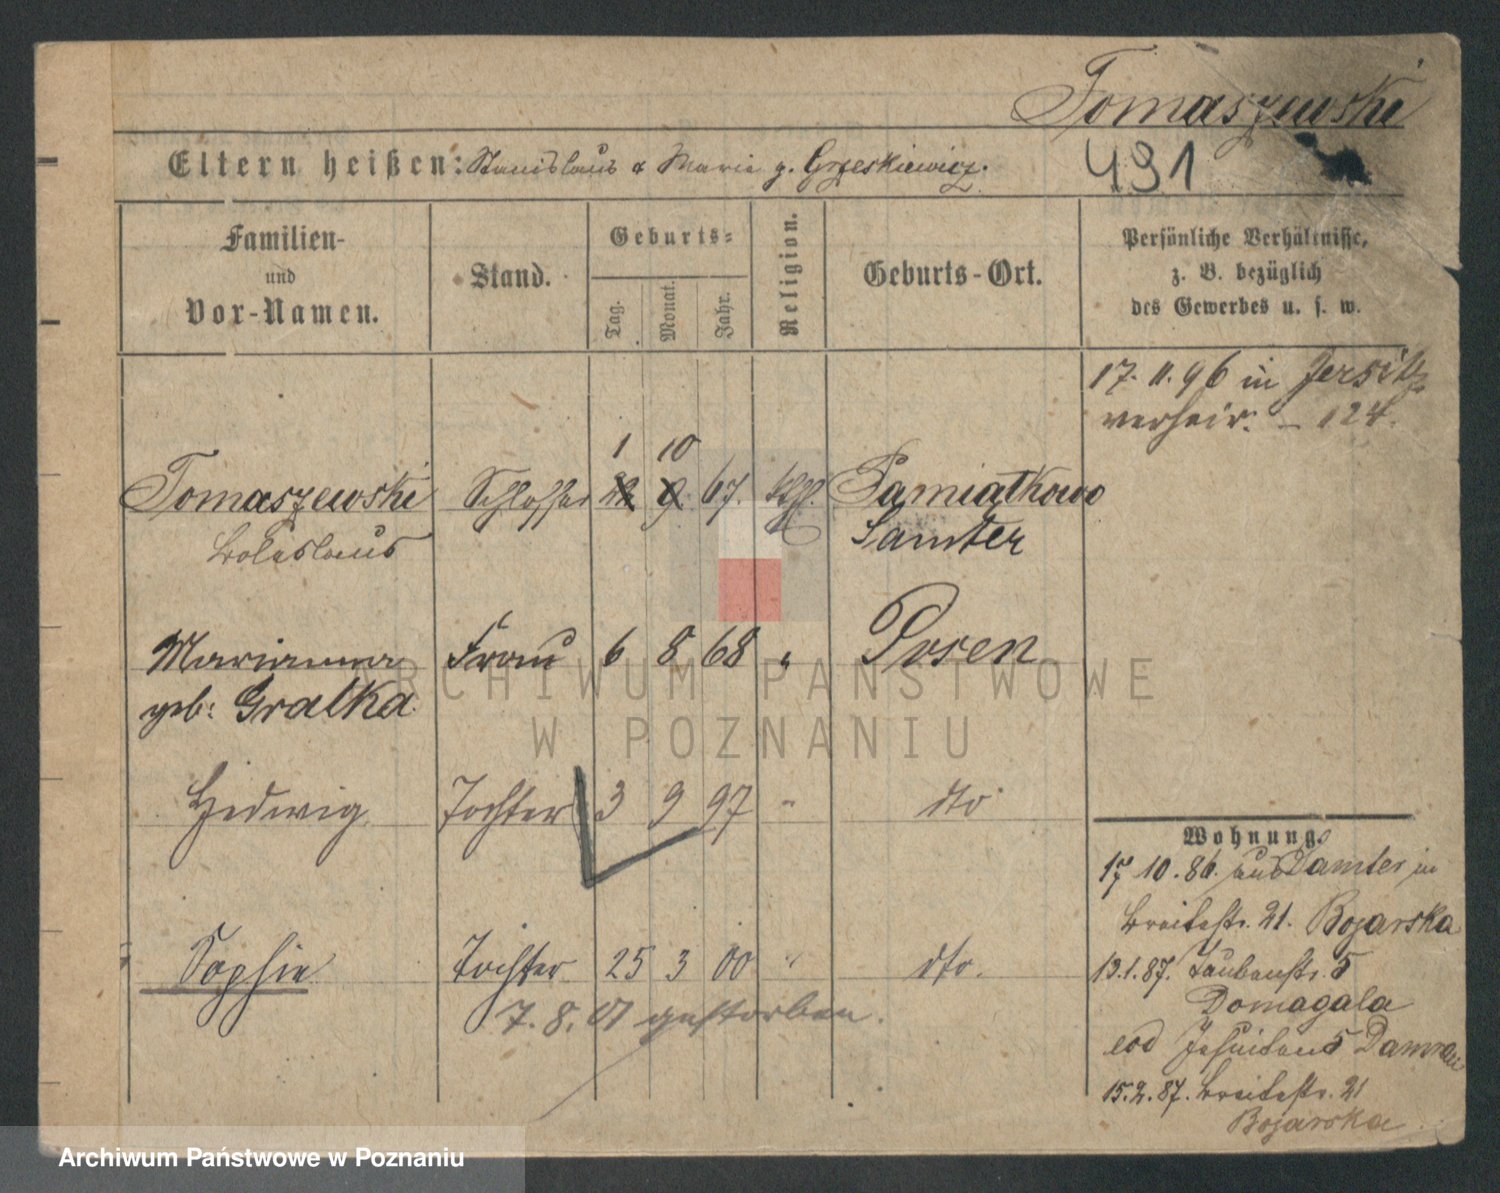 Tomaszewski
Eltern heißen: Stanislaus & Marie g. Grzeskiewicz.
491
Familien-
und
Vor-Namen.
Stand.
Geburts-
Tag.
Monat.
Jahr.
Religion.
Geburts-Ort.
Persönliche Verhältnisse,
z. B. bezüglich
des Gewerbes u. s. w.
17. 11. 96 in Jersitz
verheir. – 124.
1 10
Tomaszewski Schlosser 22 9. 67. kth. Pamiatkowo
Boleslaus Samter
Marianna Frau 6 8 68 " Posen
geb: Gralka
Hedwig Tochter 3 9 97 " dto
Sophie Tochter 25 3 00 " dto.
7. 8. 01 gestorben.
Wohnung.
17 10. 86. aus Samter in
Breitestr. 21. Bojarska
13. 1. 87. Taubenstr. 5
Domagala
eod Jesuitenst 5
15. 2. 87. Breitestr. 21
Bojarska
ARCHIWUM PAŃSTWOWE
W POZNANIU
Archiwum Państwowe w Poznaniu